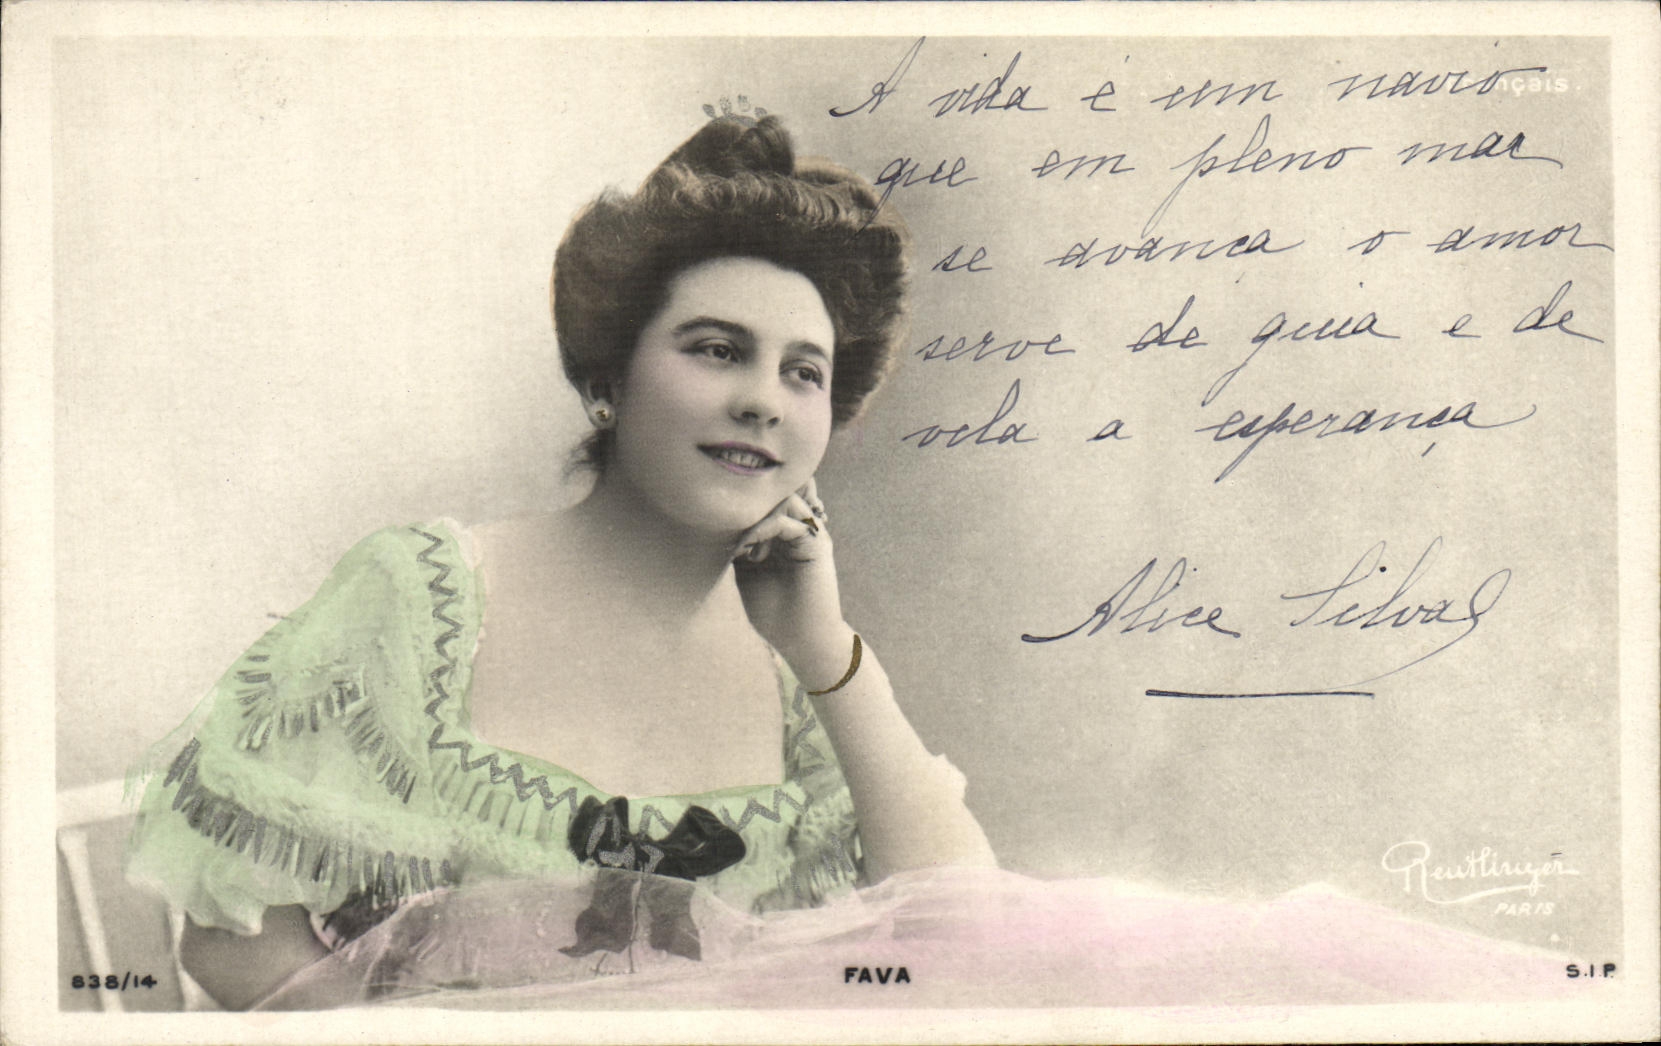 A vida é um navio
nçais.
que em pleno mar
se avança o amor
serve de guia e de
vela a esperança
Alice Silva
Reutlinger
PARIS
838/14
FAVA
S.I.P.